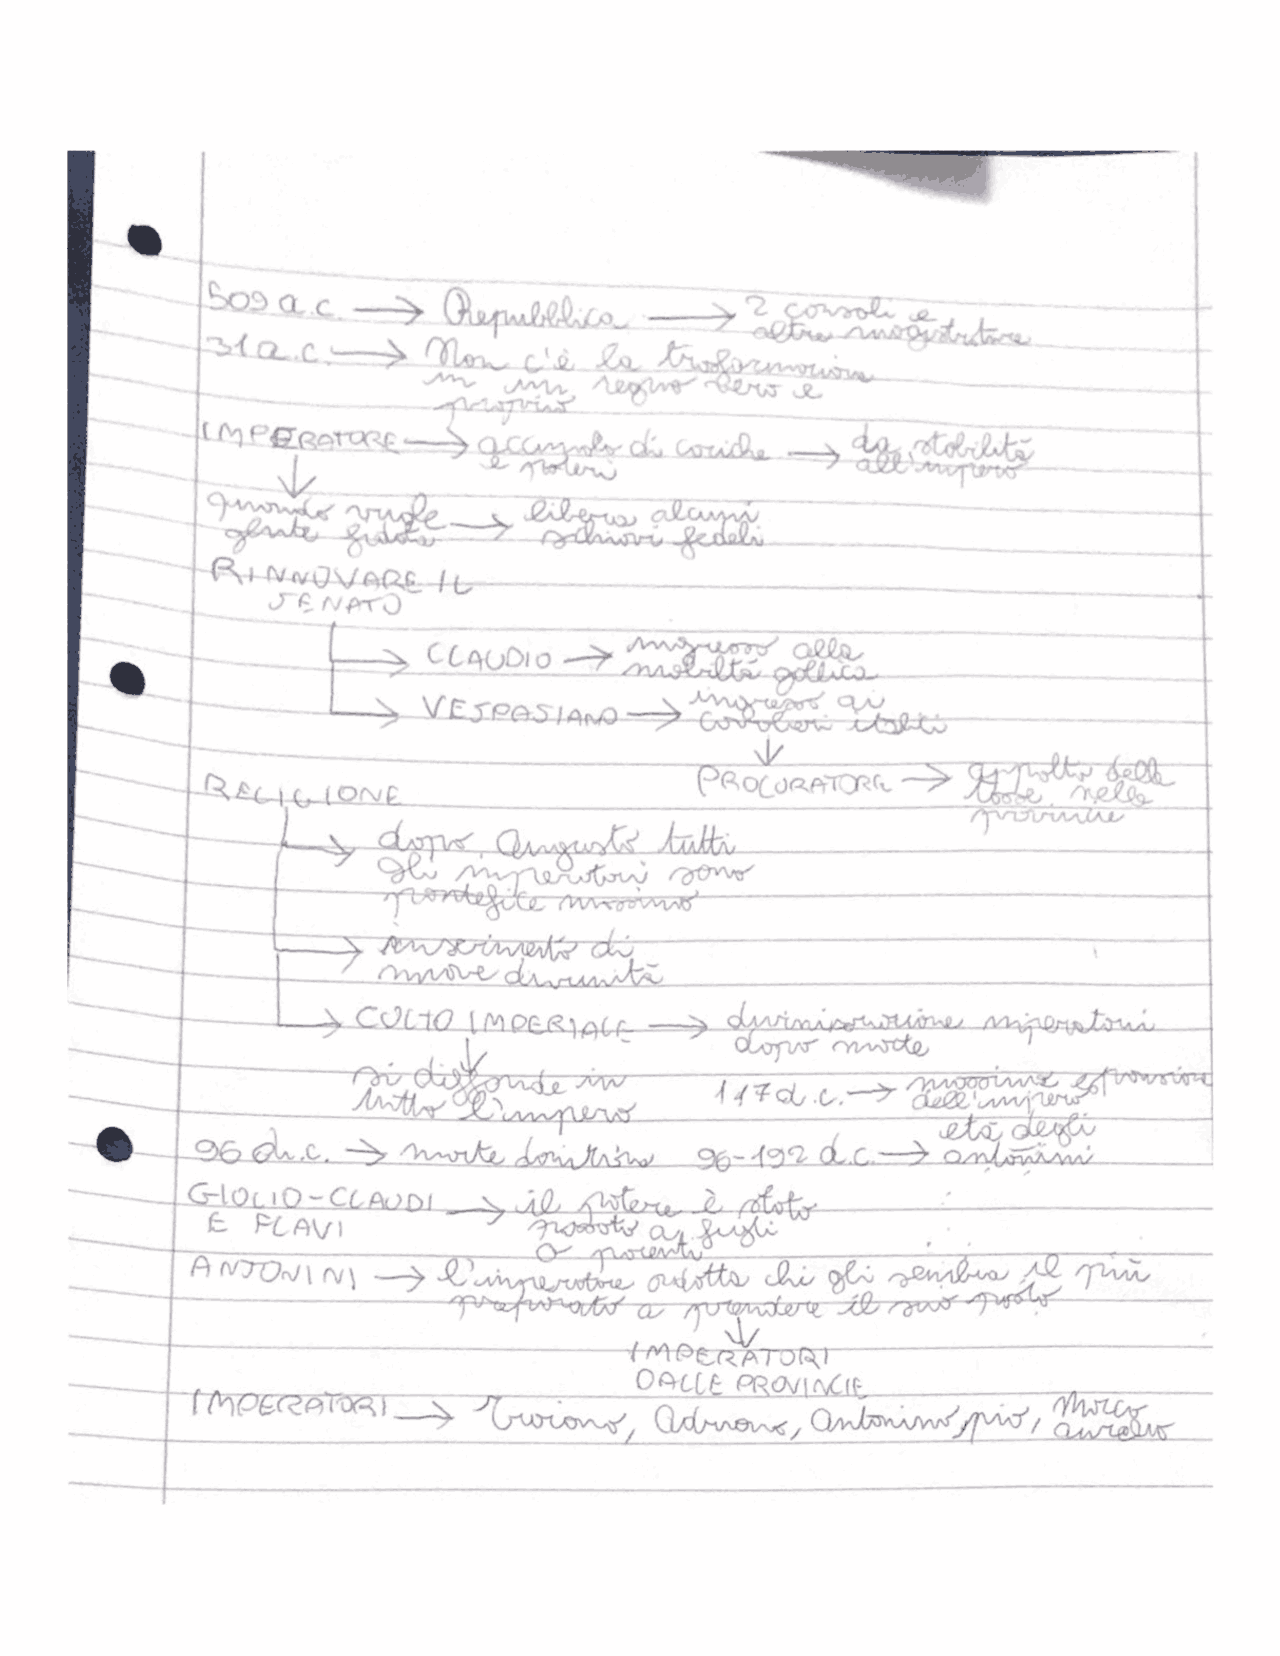 509 a.c. → Repubblica → 2 consoli e
altre magistrature
31 a.c. → Non c'è la trasformazione
in un regno vero e
proprio
IMPERATORE → accumulo di cariche → da stabilità
e poteri all'impero
↓
quando vuole → libera alcuni
gente fidata schiavi fedeli
RINNOVARE IL
SENATO
→ CLAUDIO → ingresso alla
nobiltà gallica
→ VESPASIANO → ingresso ai
cavalieri italici
↓
PROCURATORE → appalto delle
tasse nelle
provincie
RELIGIONE
→ dopo Augusto tutti
gli imperatori sono
pontefice massimo
→ inserimento di
nuove divinità
→ CULTO IMPERIALE → divinizzazione imperatori
dopo morte
↓
si diffonde in
tutto l'impero
117 d.c. → massima espansione
dell'impero
96 d.c. → morte domiziano 96-192 d.c. → età degli
antonini
GIULIO-CLAUDI → il potere è stato
E FLAVI passato a figli
o parenti
ANTONINI → l'imperatore adotta chi gli sembra il più
preparato a prendere il suo posto
↓
IMPERATORI
DALLE PROVINCIE
IMPERATORI → Traiano, Adriano, Antonino pio, Marco
aurelio